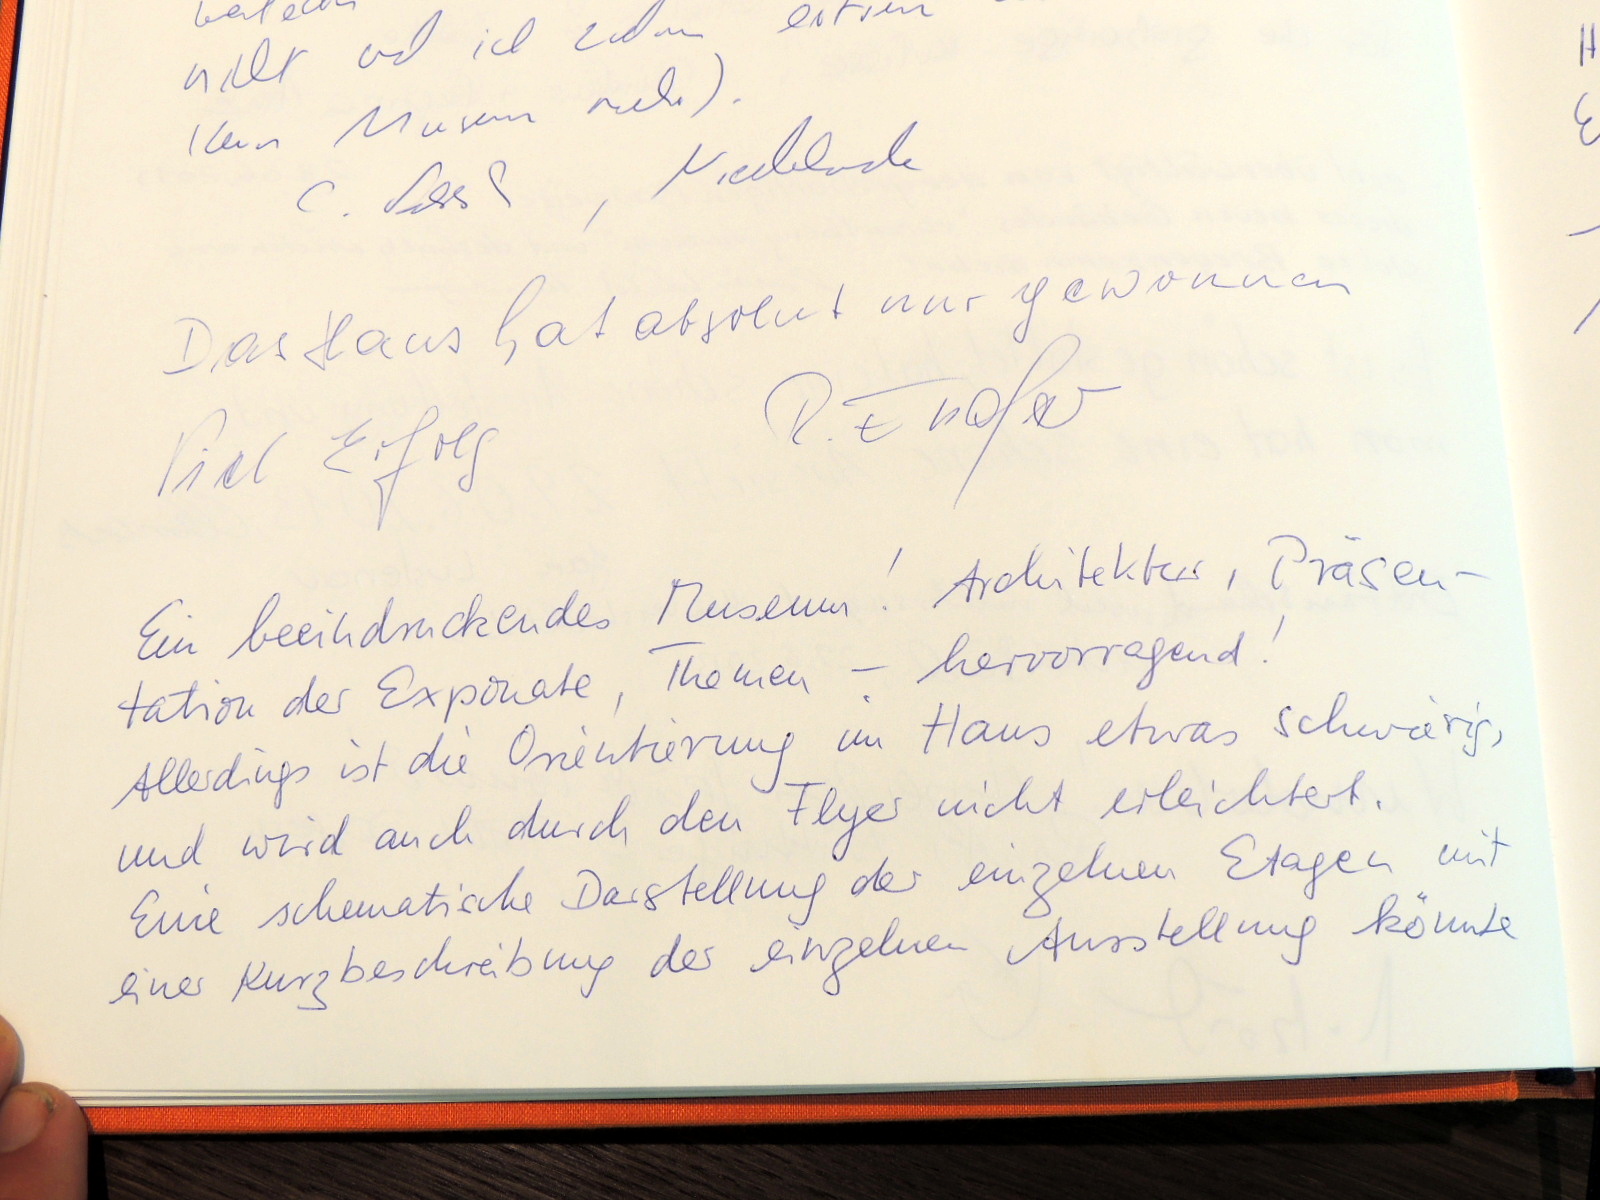 nicht und ich
kein Museum mehr).
C. , Niederlande
Das Haus hat absolut nur gewonnen
Viel Erfolg
Ein beeindruckendes Museum! Architektur, Präsen-
tation der Exponate, Themen – hervorragend!
Allerdings ist die Orientierung im Haus etwas schwierig,
und wird auch durch den Flyer nicht erleichtert.
Eine schematische Darstellung der einzelnen Etagen mit
einer Kurzbeschreibung der einzelnen Ausstellung könnte